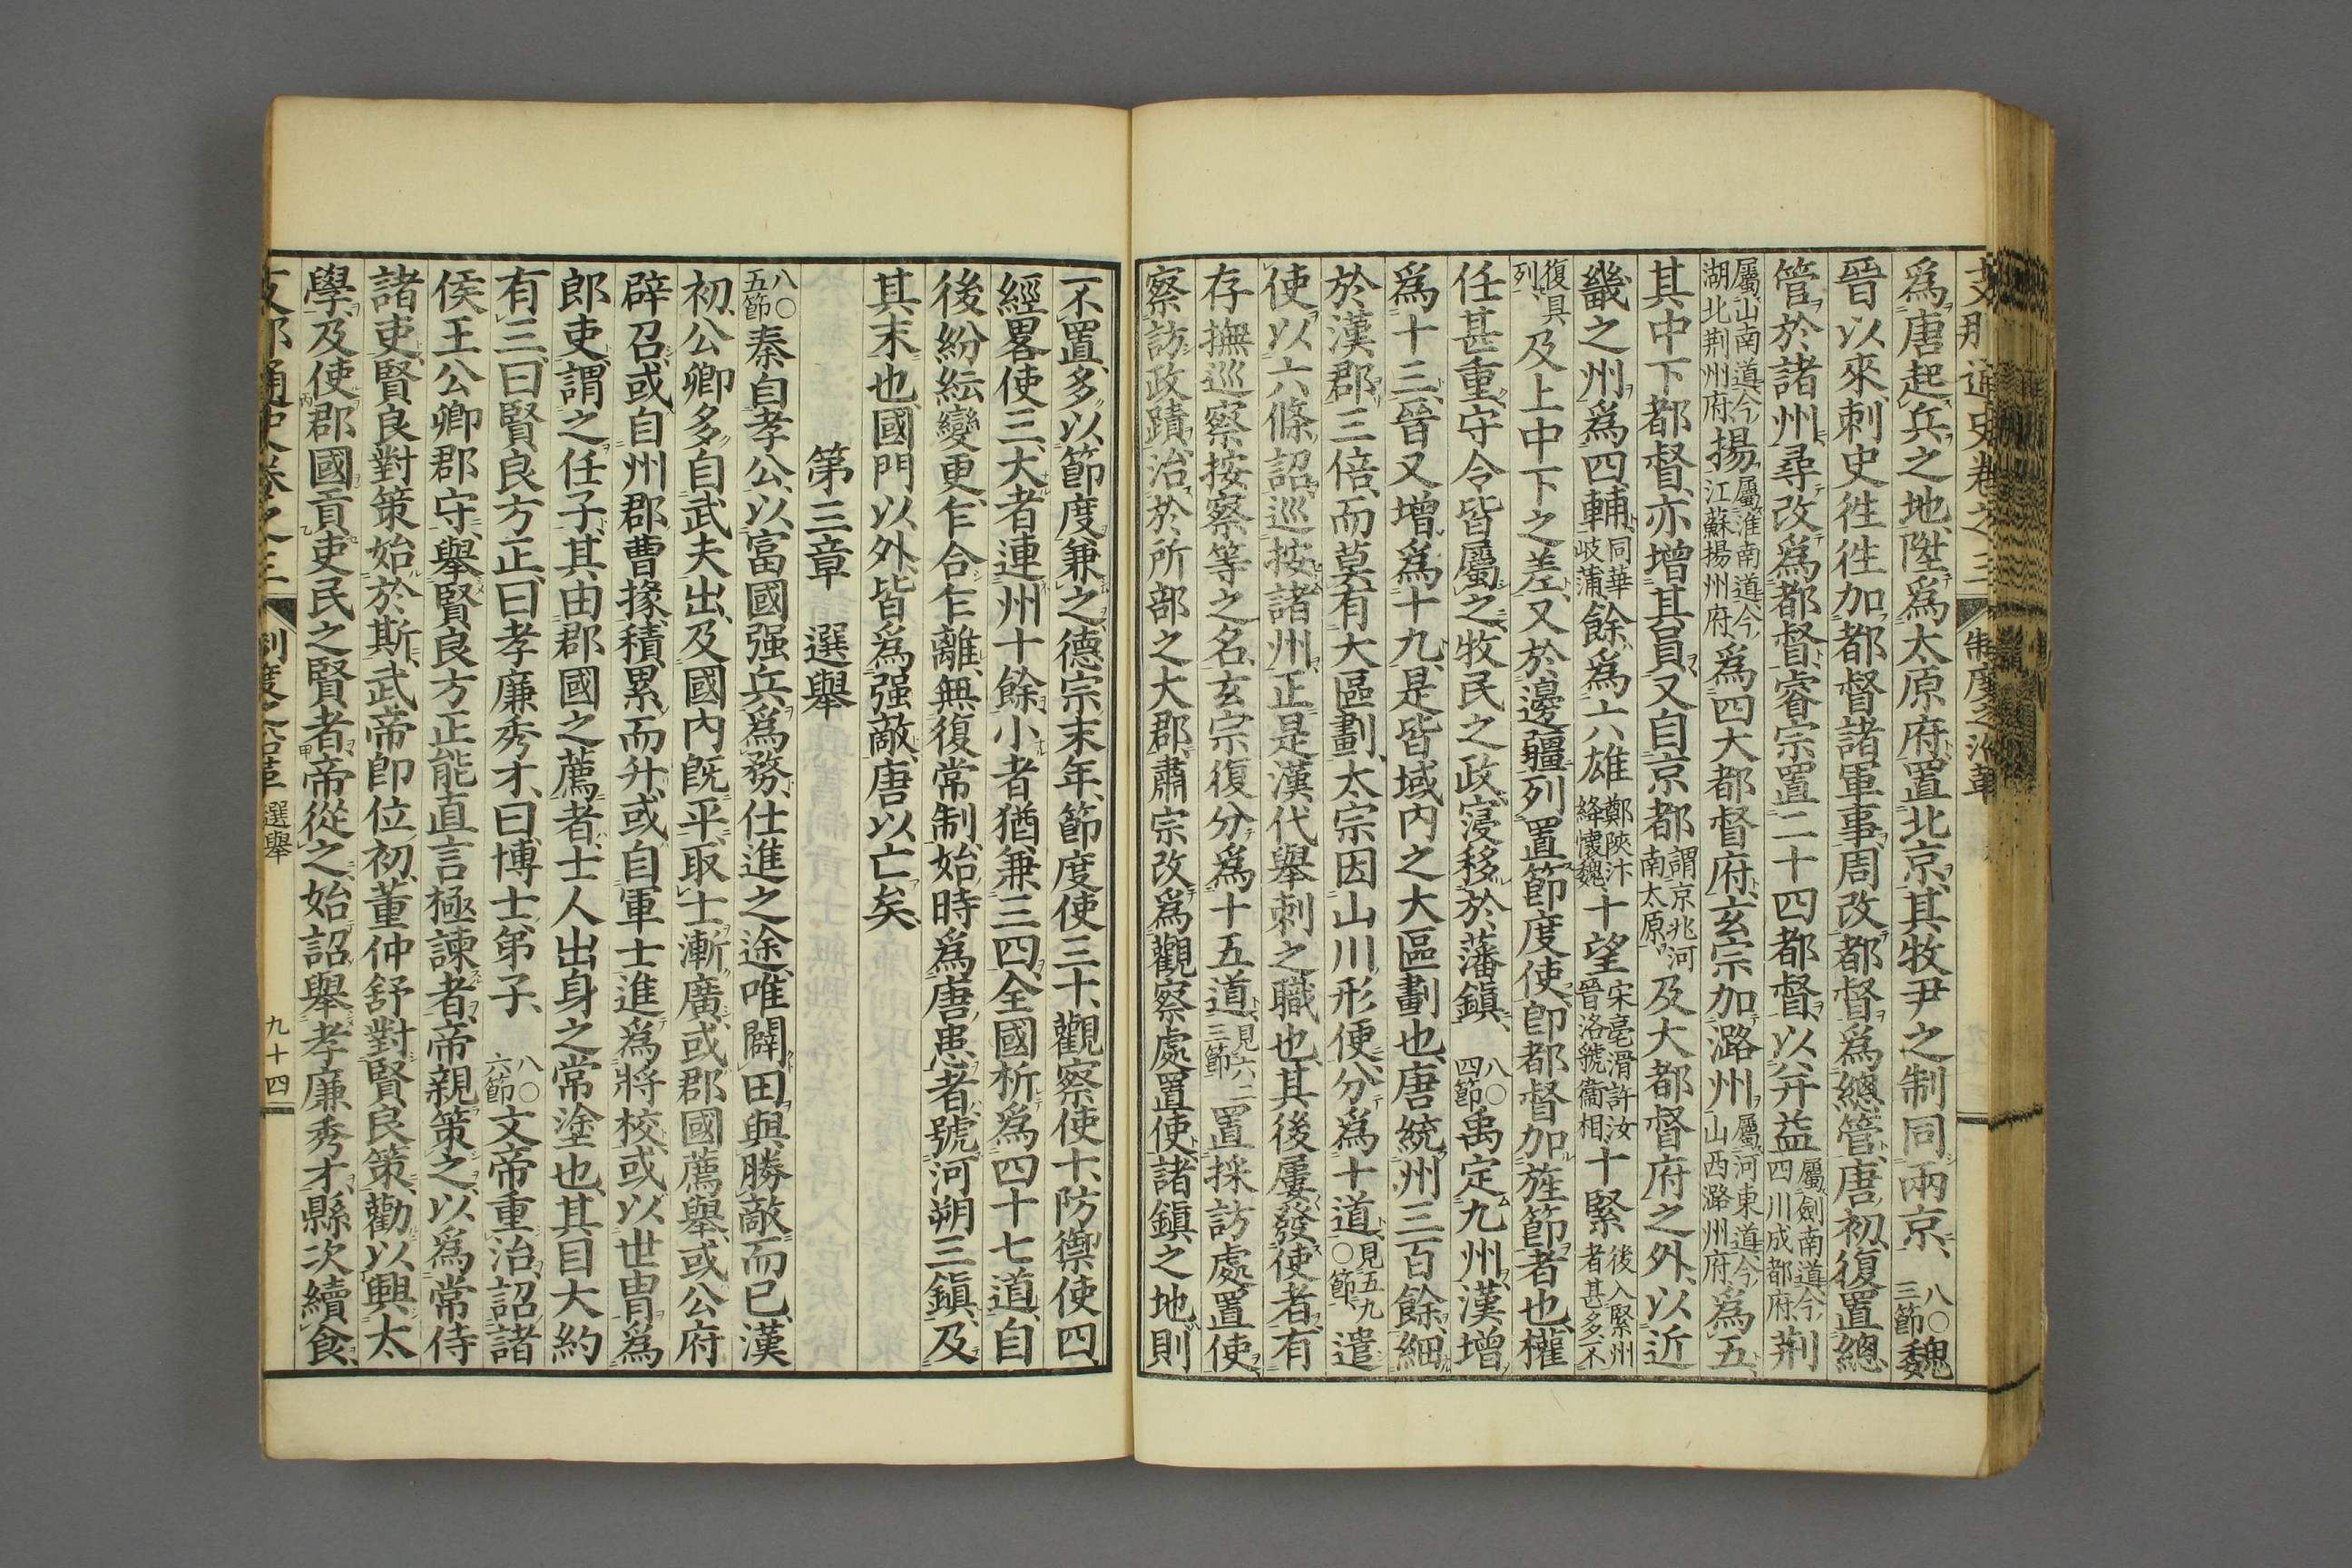 支那通史卷之三 制度之沿革
爲唐起兵之地、陞爲太原府、置北京、其牧尹之制同兩京、八〇三節魏
晉以來、刺史徃徃加都督諸軍事、周改都督爲總管、唐初復置總
管於諸州、尋改爲都督、睿宗置二十四都督、以幷益屬劍南道、今四川成都府、荆
屬山南道、今湖北荆州府、揚屬淮南道、今江蘇揚州府、爲四大都督府、玄宗加潞州屬河東道、今山西潞州府、爲五、
其中下都督、亦增其員、又自京都謂京兆河南太原、及大都督府之外、以近
畿之州爲四輔同華岐蒲、餘爲六雄鄭陝汴絳懷魏、十望宋亳滑許汝晉洛虢衞相、十緊後入緊州者甚多、不
復具列、及上中下之差、又於邊疆列置節度使、卽都督加旌節者也、權
任甚重、守令皆屬之、牧民之政、寖移於藩鎭、八〇四節禹定九州、漢增
爲十三、晉又增爲十九、是皆域內之大區劃也、唐統州三百餘、細
於漢郡三倍、而莫有大區劃、太宗因山川形便、分爲十道、見五九〇節、遣
使以六條詔巡按諸州、正是漢代舉刺之職也、其後屢發使者、有
存撫巡察按察等之名、玄宗復分爲十五道、見六二三節、置採訪處置使、
察訪政蹟、治於所部之大郡、肅宗改爲觀察處置使、諸鎭之地、則
不置、多以節度兼之、德宗末年、節度使三十、觀察使十、防禦使四、
經畧使三、大者連州十餘、小者猶兼三四、全國析爲四十七道、自
後紛紜變更、乍合乍離、無復常制、始時爲唐患者、號河朔三鎭、及
其末也、國門以外、皆爲强敵、唐以亡矣、
第三章 選舉
八〇五節秦自孝公、以富國强兵爲務、仕進之途、唯闢田與勝敵而已、漢
初、公卿多自武夫出、及國內旣平、取士漸廣、或郡國薦舉、或公府
辟召、或自州郡曹掾、積累而升、或自軍士進爲將校、或以世胄爲
郎吏、謂之任子、其由郡國之薦者、士人出身之常塗也、其目大約
有三、曰賢良方正、曰孝廉秀才、曰博士弟子、八〇六節文帝重治、詔諸
侯王公卿郡守、舉賢良方正能直言極諫者、帝親策之、以爲常侍
諸吏、賢良對策始於斯、武帝卽位初、董仲舒對賢良策、勸以興太
學、及使郡國貢吏民之賢者、帝從之、始詔舉孝廉秀才、縣次續食、
支那通史卷之三 制度之沿革 選舉 九十四